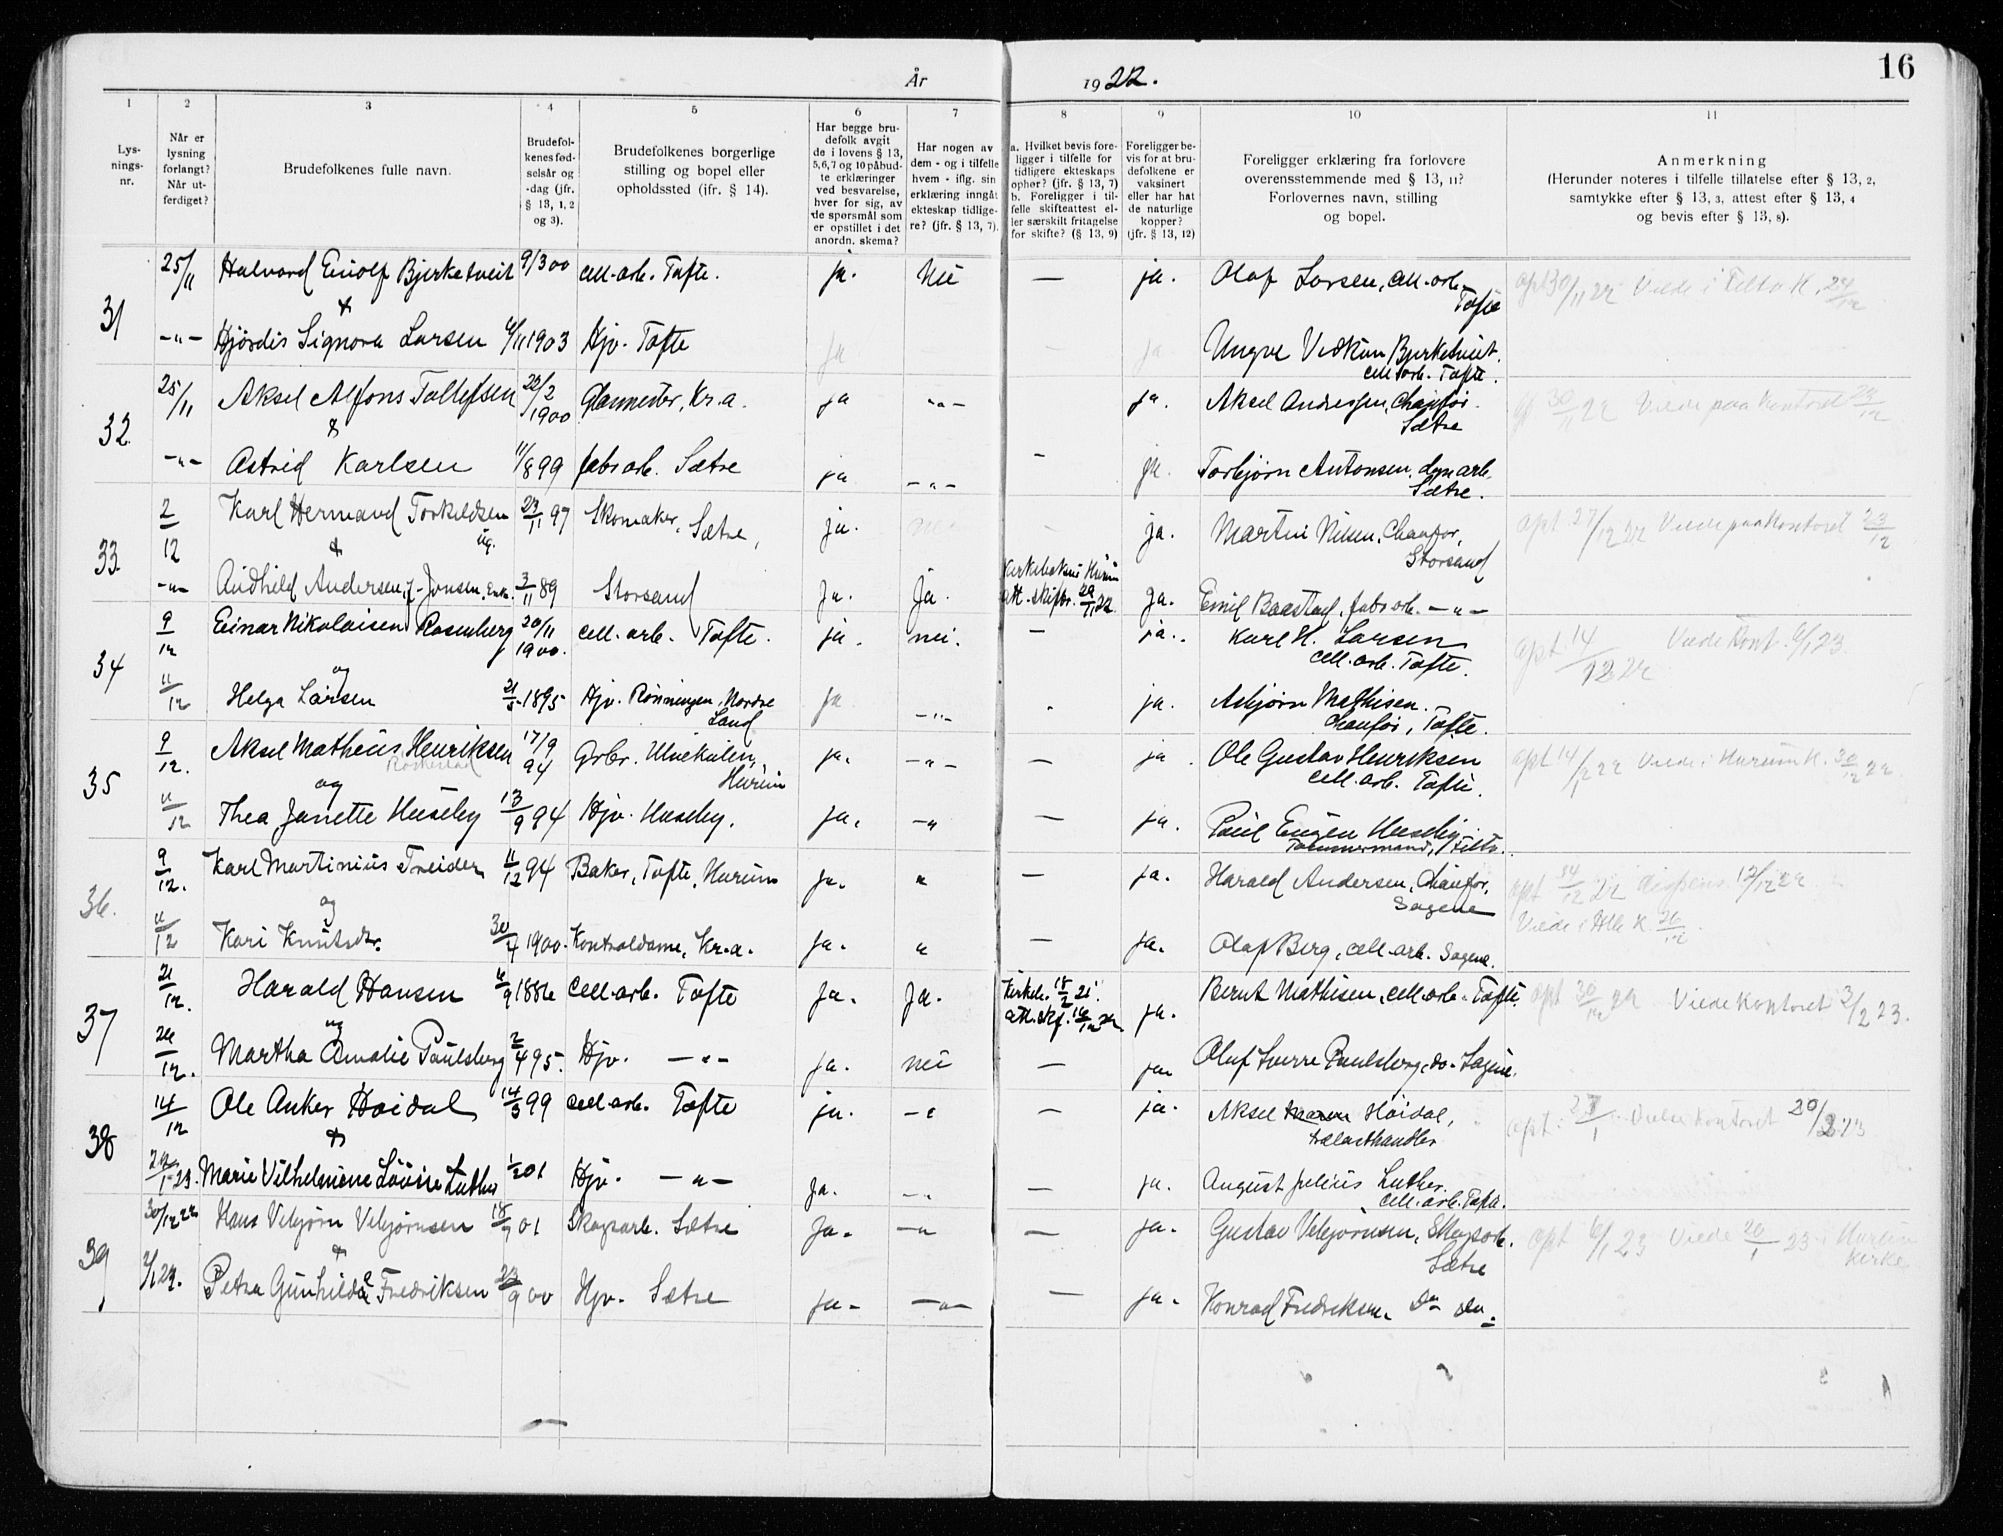 16
År 1922.
1 2 3 4 5 6 7 8 9 10 11
Lysnings-nr.
Når er lysning forlangt? Når utferdiget?
Brudefolkenes fulle navn.
Brudefolkenes fødselsår og -dag (jfr. § 13, 1, 2 og 3).
Brudefolkenes borgerlige stilling og bopel eller opholdssted (ifr. § 14).
Har begge brudefolk avgit de i lovens § 13, 5, 6, 7 og 10 påbudte erklæringer ved besvarelse, hver for sig, av de spørsmål som er opstillet i det anordn. skema?
Har nogen av dem - og i tilfelle hvem - iflg. sin erklæring inngåt ekteskap tidligere? (jfr. § 13, 7).
a. Hvilket bevis foreligger i tilfelle for tidligere ekteskaps ophør? (jfr. § 13, 7) b. Foreligger i tilfelle skifteattest eller særskilt fritagelse for skifte? (§ 13, 9)
Foreligger bevis for at brudefolkene er vaksinert eller har hat de naturlige kopper? (jfr. § 13, 12)
Foreligger erklæring fra forlovere overensstemmende med § 13, 11? Forlovernes navn, stilling og bopel.
Anmerkning
(Herunder noteres i tilfelle tillatelse efter § 13, 2, samtykke efter § 13, 3, attest efter § 13, 4 og bevis efter § 13, 8).
31 25/11 Halvard Einolf Bjerketveit 9/3 00 cell.arb. Tofte. ja. Nei — ja. Olaf Larsen, cell.arb. Tofte opt 30/11 22 Viede i Filtv. K. 24/12
&
-"- Hjördis Signora Larsen 6/11 1903 Hjv. Tofte ja — ja Yngve Vidkun Bjerketveit. cell.arb. Tofte.
32 25/11 Aksel Alfons Tollefsen 22/2 1900 Glarmester, Kr.a. ja -"- ja. Aksel Andersen, Chauffør. Sætre 30/11 22 Viede paa Kontoret 23/12
&
-"- Astrid Karlsen 11/8 99 fabr.arb. Sætre ja -"- — ja. Torbjørn Antonsen. dyn.arb. Sætre.
33 2/12 Karl Hermand Torkildsen ug. 23/11 97 Skomaker, Sætre, ja. nei - ja. Martin Nilsen, Chauffør, Storsand opt 27/12 22 Viede paa Kontoret 23/12
&
-"- Andhild Andersen, f. Jonsen, Enke. 3/11 89 Storsand Ja. Ja. Kirkeboksut Hurum att. skiftr. 29/11 22. Ja. Emil Baastad, fabr.arb. -"-
34 9/12 Einar Nikolaisen Rosenberg 20/11 1900. cell.arb. Tofte. ja. nei. — ja. Karl H. Larsen cell.arb. Tofte. opt 14/12 22 Viede Kont. 6/1 23.
og
11/12 Helga Larsen 21/5 1895 Hjv. Rønningen, Nordre Land Ja -"- . ja. Asbjørn Mathisen. Chauffør, Tofte.
35 9/12. Aksel Matheus Henriksen 17/9 94 Grbr. Hurum ja. -"- — ja. Ole Gustav Henriksen cell.arb. Tofte. opt 14/1 22 Viede i Hurum K. 30/12 22.
og
11/12 Thea Janette Huseby 13/9 94 Hjv. Huseby. ja. -" — ja. Paul Eugen Huseby. Tømmermand, Filtv.
36. 9/12. Karl Martinius Treider 11/12 94 Baker, Tofte, Hurum ja. " — ja. Harald Andersen, Chauffør. Sagene opt 22 dispens. 12/12 22
og Viede i K. 26/12.
11/12 Kari Knutsdtr. 30/4 1900. Kontroldame, Kr.a. Ja. " — ja. Olaf Berg, cell.arb. Sagene.
37 21/12. Harald Hansen 6/9 1886 cell.arb. Tofte Ja. Ja. Kirkeb. 18/2 21. att. skf. 16/12 22 ja. Bernt Mathisen, cell.arb. Tofte. opt 30/12 22. Viede Kontoret 3/2 23.
og
26/12. Martha Amalie Paulsberg 2/4 95. Hjv. -"- Ja. nei — ja Oluf Sverre Paulsberg, do. Sagene.
38 14/12 Ole Anker Høidal 14/3 99 cell.arb. Tofte ja. -" — ja. Aksel Høidal, trælasthandler opt. 27/1 Viede Kontoret 20/2 23
&
22/1 23. Marie Vilhelmine Lovise Luther 1/2 01 Hjv. -"- Ja. -" — ja. August Julius Luther. cell.arb. Tofte.
39 30/12 22 Hans Vebjørn Vebjørnsen 18/9 01 Skogsarb. Sætre Ja. -" — ja. Gustav Vebjørnsen, Skogsarb. Sætre opt 6/1 23 Viede 20/1 23 i Hurum Kirke
&
2/1 23. Petra Gunhilda Fredriksen 23/9 00 Hjv. Sætre ja. -"- — ja. Konrad Fredriksen